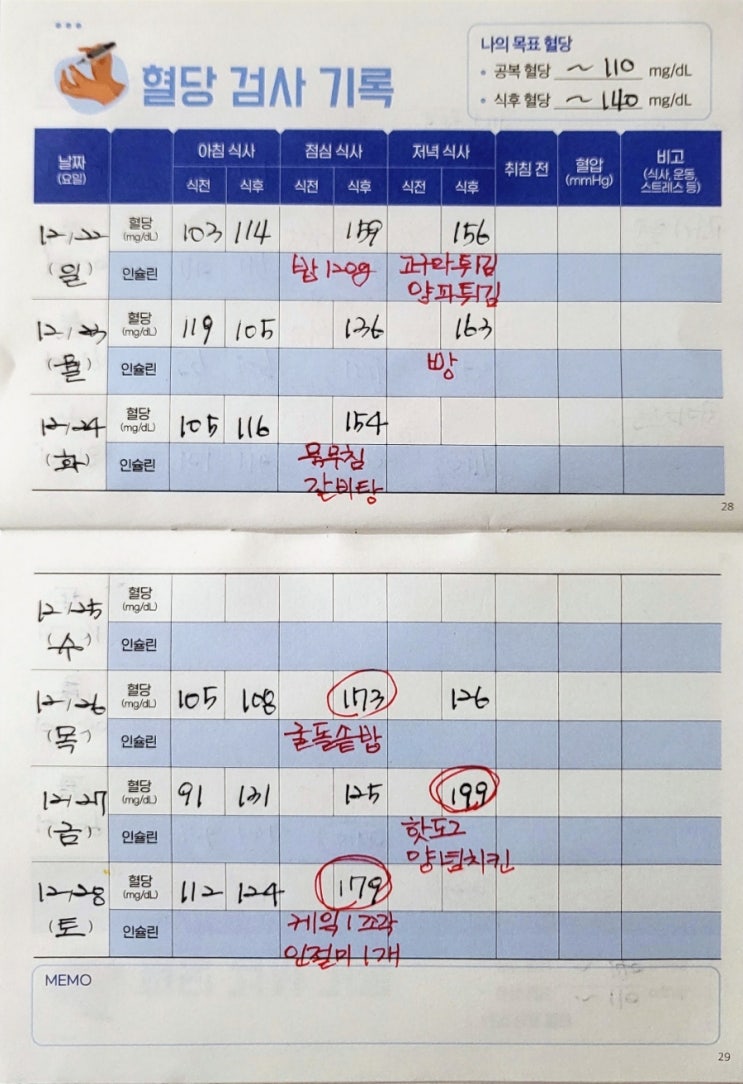 혈당 검사 기록
나의 목표 혈당
• 공복 혈당 ~ 110 mg/dL
• 식후 혈당 ~ 140 mg/dL
날짜 (요일) 아침 식사 점심 식사 저녁 식사 취침 전 혈압 (mmHg) 비고 (식사, 운동, 스트레스 등)
식전 식후 식전 식후 식전 식후
12/22 혈당 (mg/dL) 103 114 159 156
(일) 인슐린 밥 120g 고구마튀김
양파튀김
12/23 혈당 (mg/dL) 119 105 136 163
(월) 인슐린 빵
12/24 혈당 (mg/dL) 105 116 154
(화) 인슐린 묵무침
갈비탕
28
12/25 혈당 (mg/dL)
(수) 인슐린
12/26 혈당 (mg/dL) 105 108 173 126
(목) 인슐린 굴돌솥밥
12/27 혈당 (mg/dL) 91 131 125 199
(금) 인슐린 핫도그
양념치킨
12/28 혈당 (mg/dL) 112 124 179
(토) 인슐린 케익 1조각
인절미 1개
MEMO
29